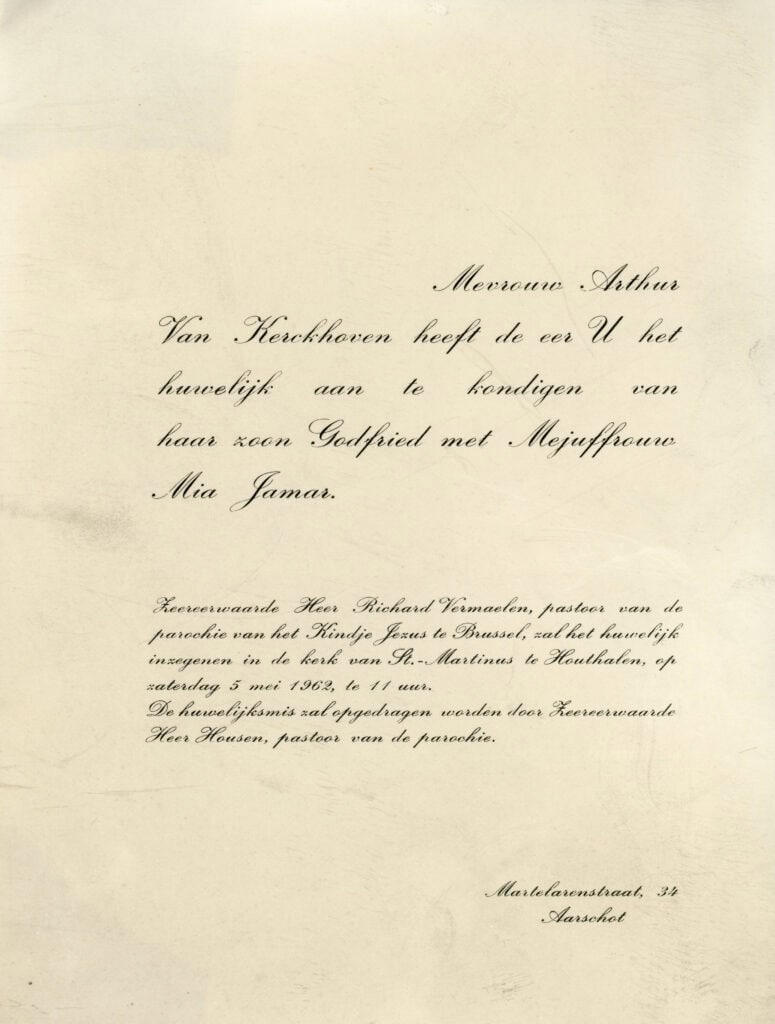 Mevrouw Arthur
Van Kerckhoven heeft de eer U het
huwelijk aan te kondigen van
haar zoon Godfried met Mejuffrouw
Mia Jamar.
Zeereerwaarde Heer Richard Vermaelen, pastoor van de
parochie van het Kindje Jezus te Brussel, zal het huwelijk
inzegenen in de kerk van St.-Martinus te Houthalen, op
zaterdag 5 mei 1962, te 11 uur.
De huwelijksmis zal opgedragen worden door Zeereerwaarde
Heer Housen, pastoor van de parochie.
Martelarenstraat, 34
Aarschot